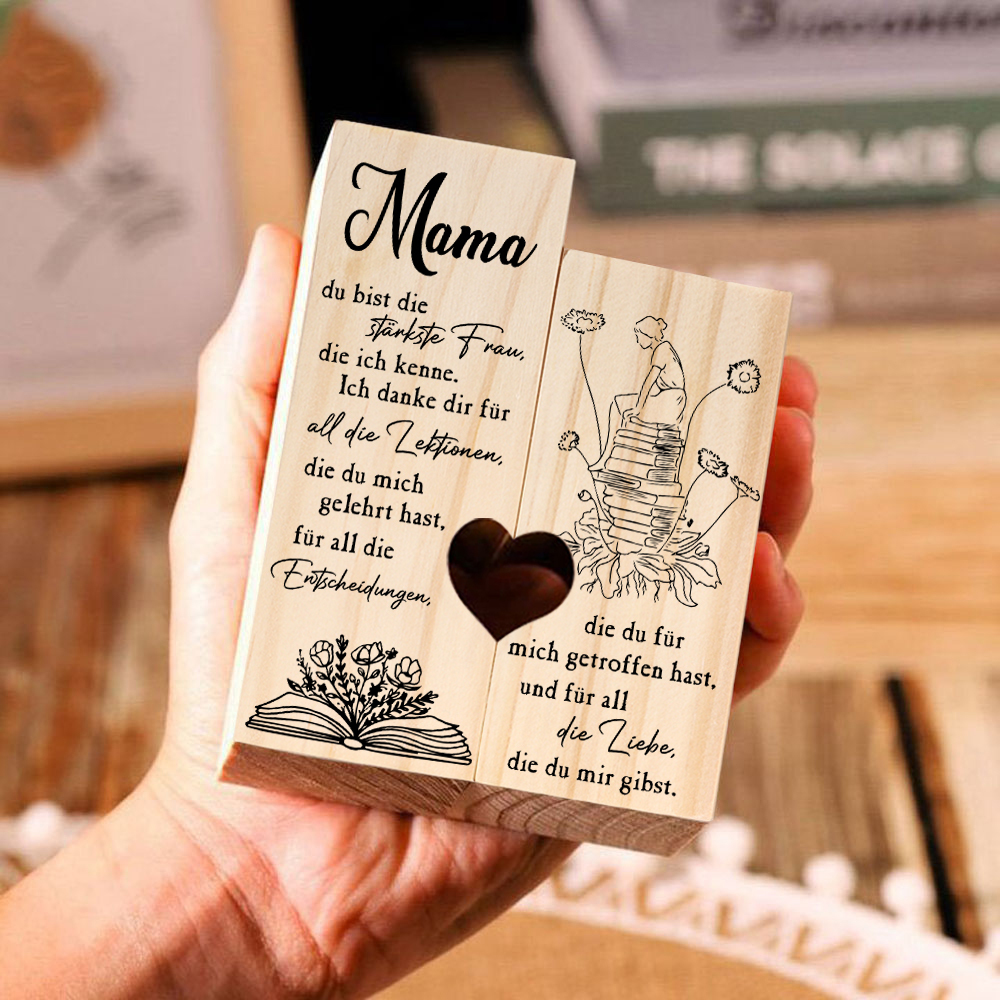 Mama
du bist die
stärkste Frau,
die ich kenne.
Ich danke dir für
all die Lektionen,
die du mich
gelehrt hast,
für all die
Entscheidungen,
die du für
mich getroffen hast,
und für all
die Liebe,
die du mir gibst.
THE SOLACE